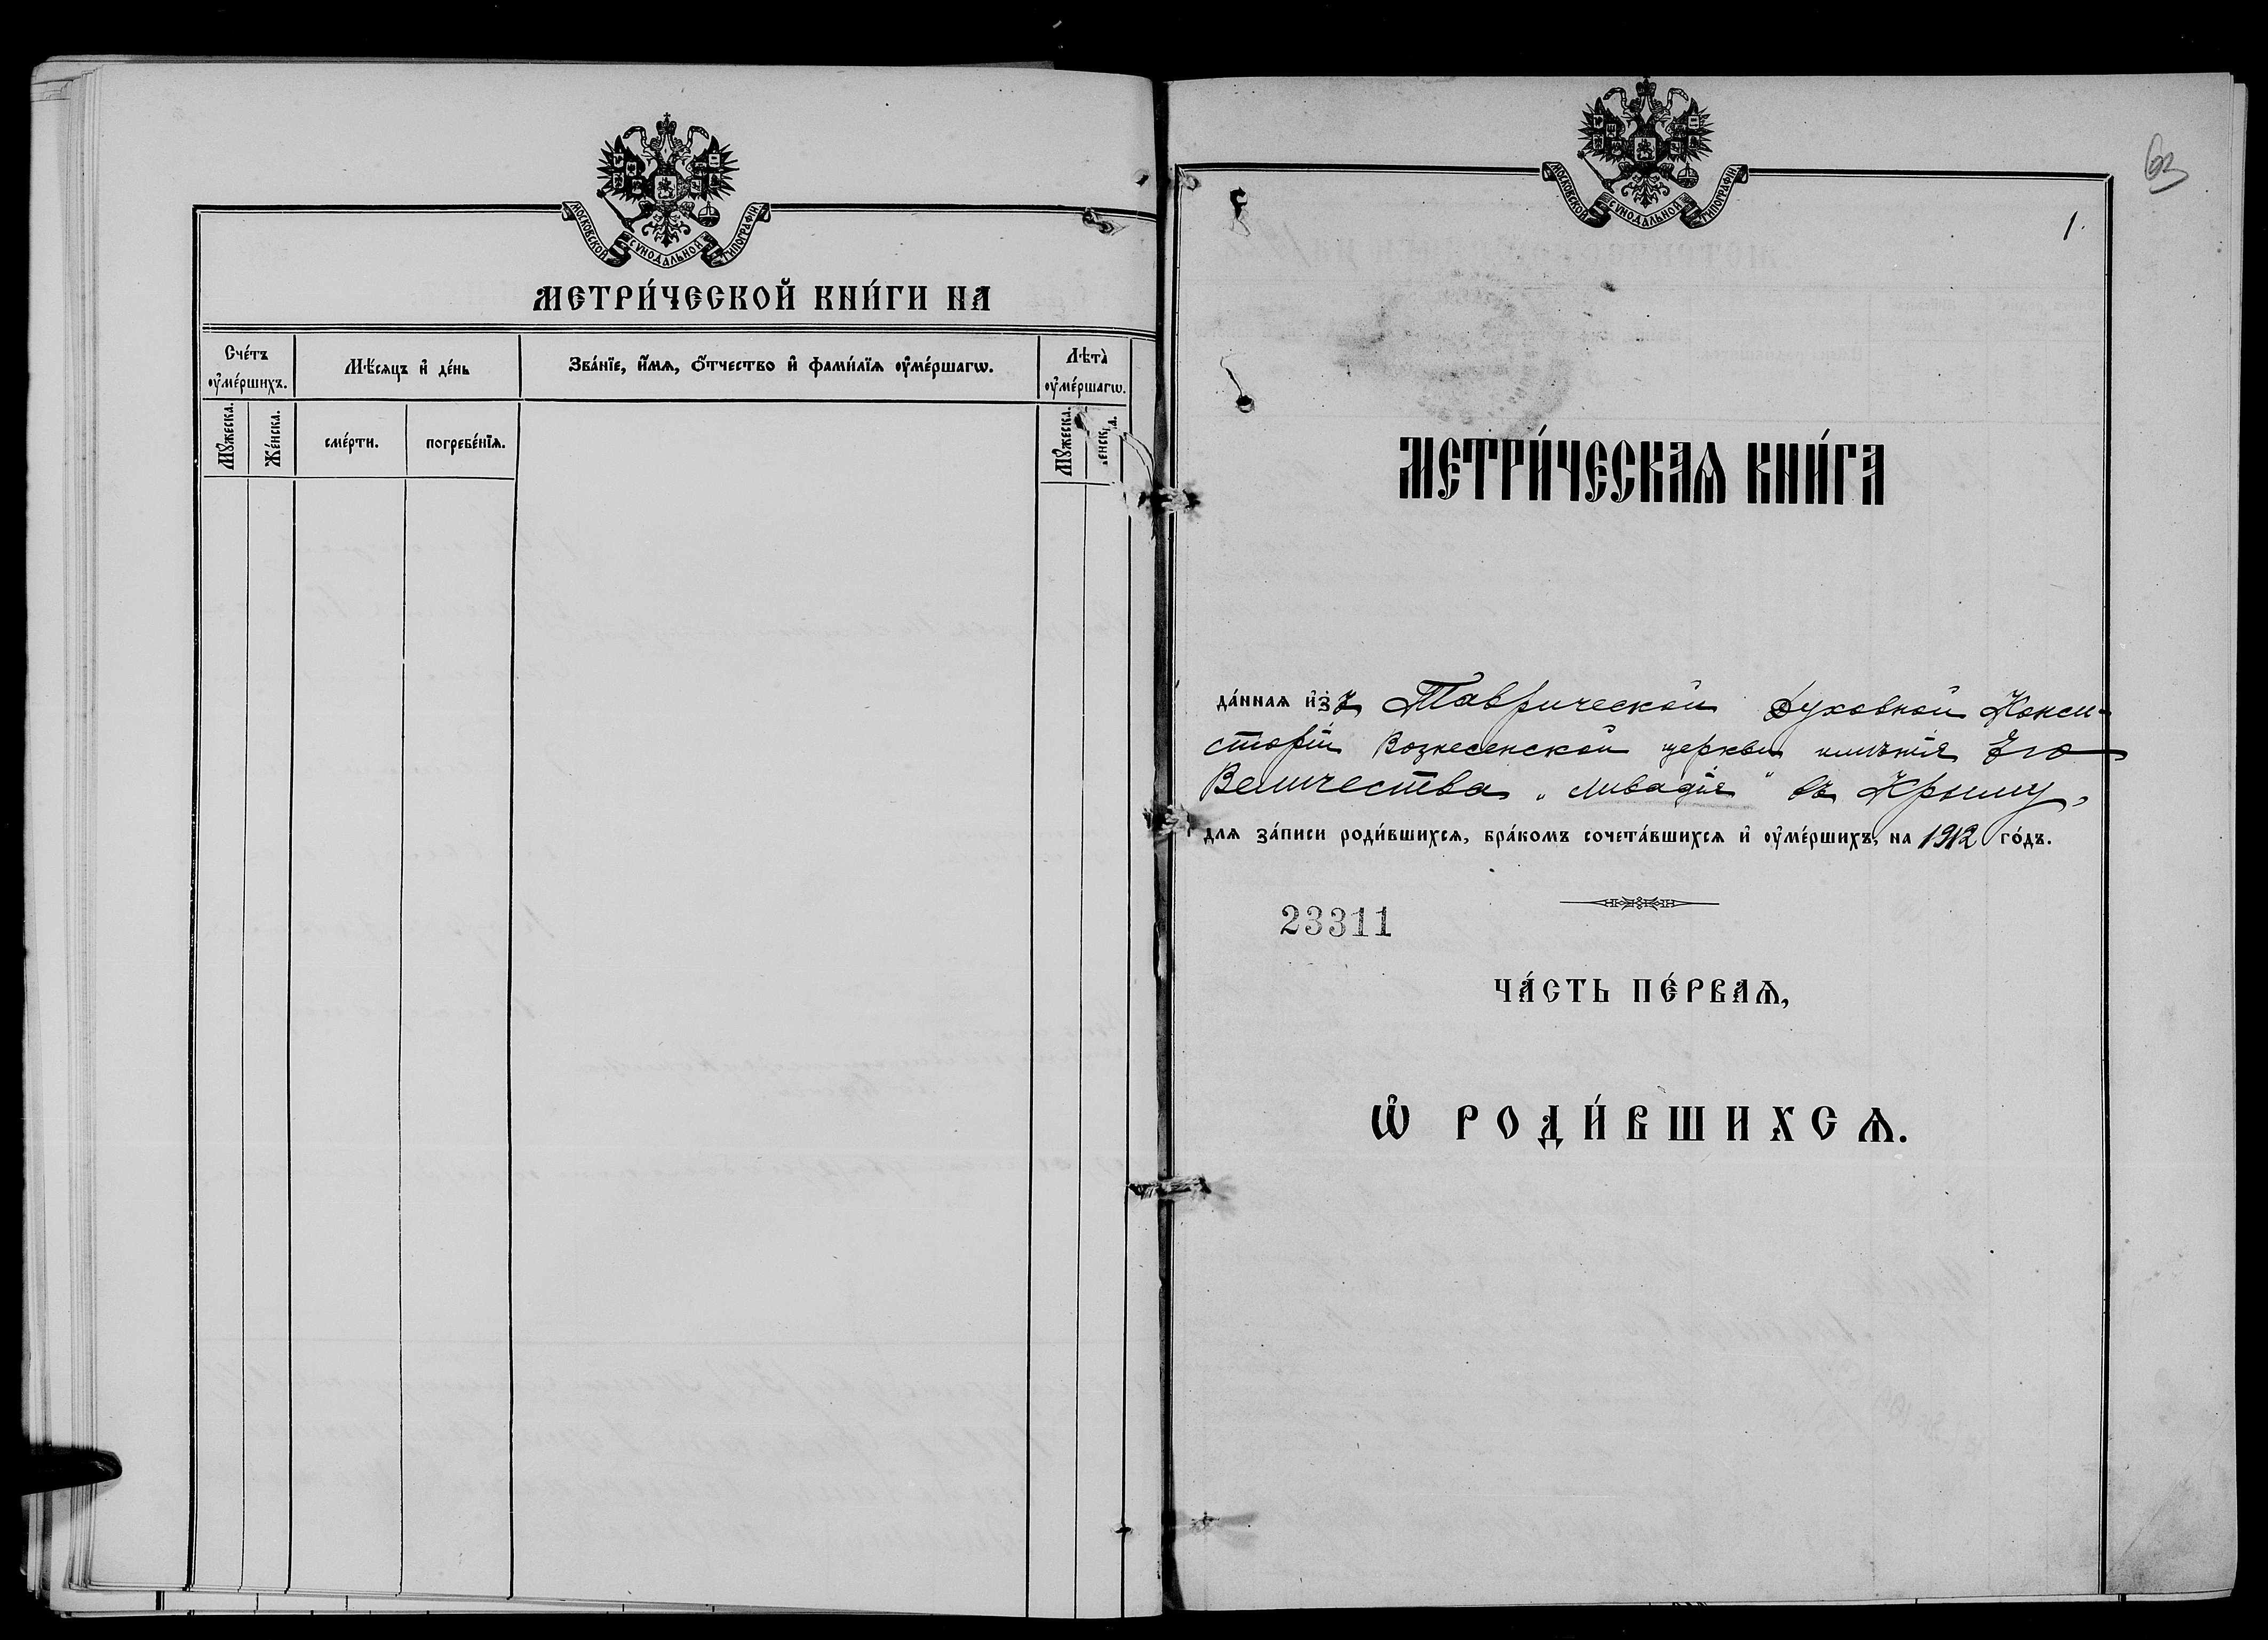 МОСКОВСКОЙ СѴНОДАЛЬНОЙ ТИПОГРАФІИ
МЕТРИ́ЧЕСКОЙ КНИ́ГИ НА
Сче́тъ ᲂу҆ме́ршихъ.
Мѣ́сяцъ и҆ де́нь
Зва́нїе, и҆́мѧ, ѻ҆́тчество и҆ фами́лїѧ ᲂу҆ме́ршагѡ.
Лѣта̀ ᲂу҆ме́ршагѡ.
Мꙋ́жеска.
Же́нска.
сме́рти.
погребе́нїѧ.
Мꙋ́жеска.
63
МОСКОВСКОЙ СѴНОДАЛЬНОЙ ТИПОГРАФІИ
1.
МЕТРИ́ЧЕСКАѦ КНИ́ГА
да́ннаѧ и҆зъ Таврической Духовной Конси-
сторіи Вознесенской церкви имѣнія Его
Величества „Ливадія“ въ Крыму,
для за́писи роди́вшихсѧ, бра́комъ сочета́вшихсѧ и҆ ᲂу҆ме́ршихъ, на 1912 го́дъ.
23311
ЧА́СТЬ ПЕ́РВАѦ,
Ѽ РОДИ́ВШИХСѦ.